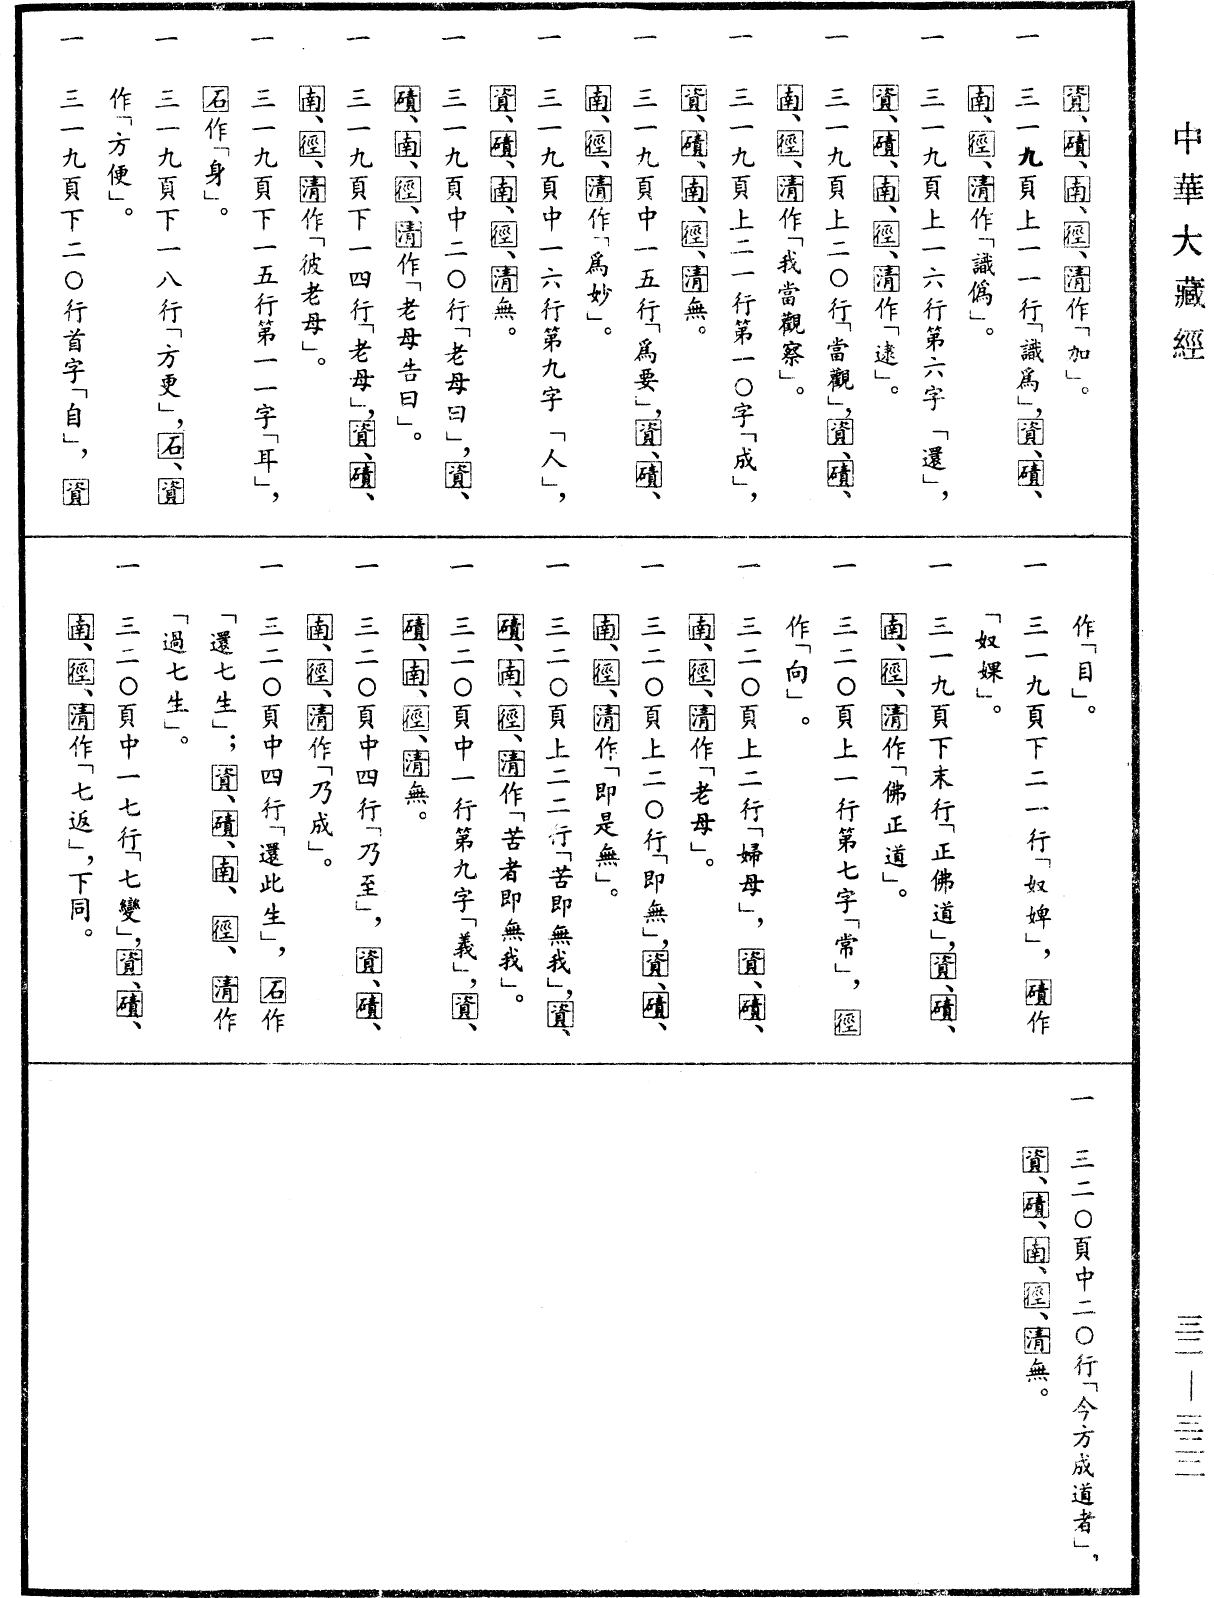 中華大藏經
資、磧、南、徑、清作「加」。
一 三一九頁上一一行「識爲」，資、磧、
南、徑、清作「識僞」。
一 三一九頁上一六行第六字「還」，
資、磧、南、徑、清作「逮」。
一 三一九頁上二〇行「當觀」，資、磧、
南、徑、清作「我當觀察」。
一 三一九頁上二一行第一〇字「成」，
資、磧、南、徑、清無。
一 三一九頁中一五行「爲要」，資、磧、
南、徑、清作「爲妙」。
一 三一九頁中一六行第九字「人」，
資、磧、南、徑、清無。
一 三一九頁中二〇行「老母曰」，資、
磧、南、徑、清作「老母告曰」。
一 三一九頁下一四行「老母」，資、磧、
南、徑、清作「彼老母」。
一 三一九頁下一五行第一一字「耳」，
石作「身」。
一 三一九頁下一八行「方更」，石、資
作「方便」。
一 三一九頁下二〇行首字「自」，資
作「目」。
一 三一九頁下二一行「奴婢」，磧作
「奴婐」。
一 三一九頁下末行「正佛道」，資、磧、
南、徑、清作「佛正道」。
一 三二〇頁上一行第七字「常」，徑
作「向」。
一 三二〇頁上二行「婦母」，資、磧、
南、徑、清作「老母」。
一 三二〇頁上二〇行「即無」，資、磧、
南、徑、清作「即是無」。
一 三二〇頁上二二行「苦即無我」，資、
磧、南、徑、清作「苦者即無我」。
一 三二〇頁中一行第九字「義」，資、
磧、南、徑、清無。
一 三二〇頁中四行「乃至」，資、磧、
南、徑、清作「乃成」。
一 三二〇頁中四行「還此生」，石作
「還七生」；資、磧、南、徑、清作
「過七生」。
一 三二〇頁中一七行「七變」，資、磧、
南、徑、清作「七返」，下同。
一 三二〇頁中二〇行「今方成道者」，
資、磧、南、徑、清無。
三二—三二二